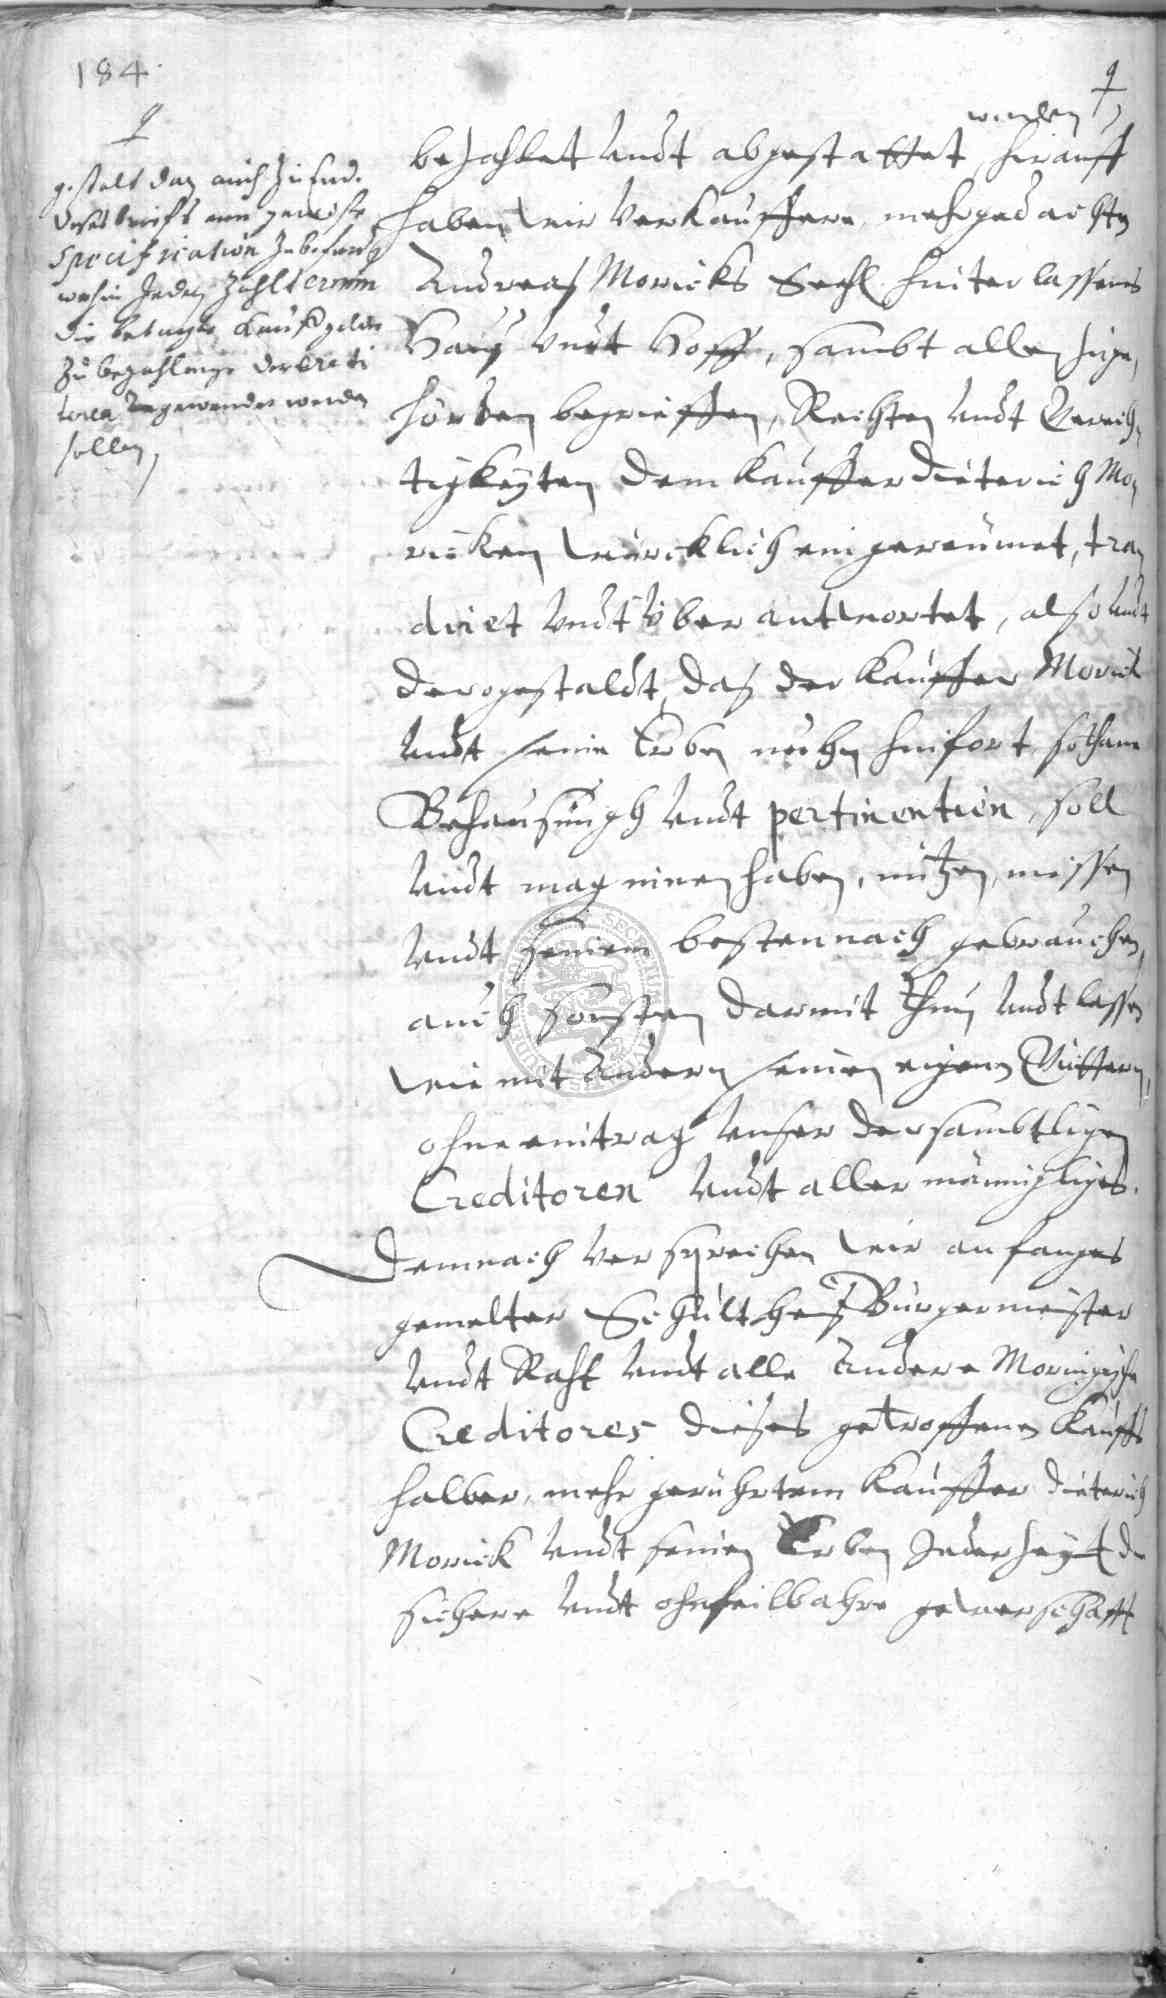 184.
gestalt dan auch zu end
dieses brieffs eine gewisse
Specification zu befinden
wohin Jeden Zahltermin
die betagte Kauffgelder
Zu bezahlunge der Credi
toren angewendet werden
sollen,
werden
bezahlet undt abgestattet, hierauff
haben wir Verkauffere mehrgedachten
Andreas Moricks Seehl. hinterlassenes
Haus undt Hoff, sambt allen zuge,
hörden begrieffen, Rechten undt Gerech,
tigkeyten dem Kauffer Dieterich Mo,
ricken würcklich eingereümet, tra,
diret undt überantwortet, also undt
derogestaldt, das der Kauffer Morick
undt seine Erben nuhn hinfort sothane
Behausungh undt pertinentien, soll
undt mag innenhaben, nutzen, niessen
undt seinem besten nach gebrauchen,
auch sonsten darmit thun undt lassen
wie mit andern seinen eigenen Güttern,
ohne eintrag unser der sambtligen
Creditoren undt aller männigliges.
Demnach versprechen wir anfangs
gemelter Schultheis Bürgermeister
undt Raht undt alle andere Moringische
Creditores dieses getroffenen Kauffs
halber, mehr gerührtem Kauffer Dieterich
Morick undt seinen Erben Jederzeyt die
sichere undt ohnfeilbahre gewerschafft